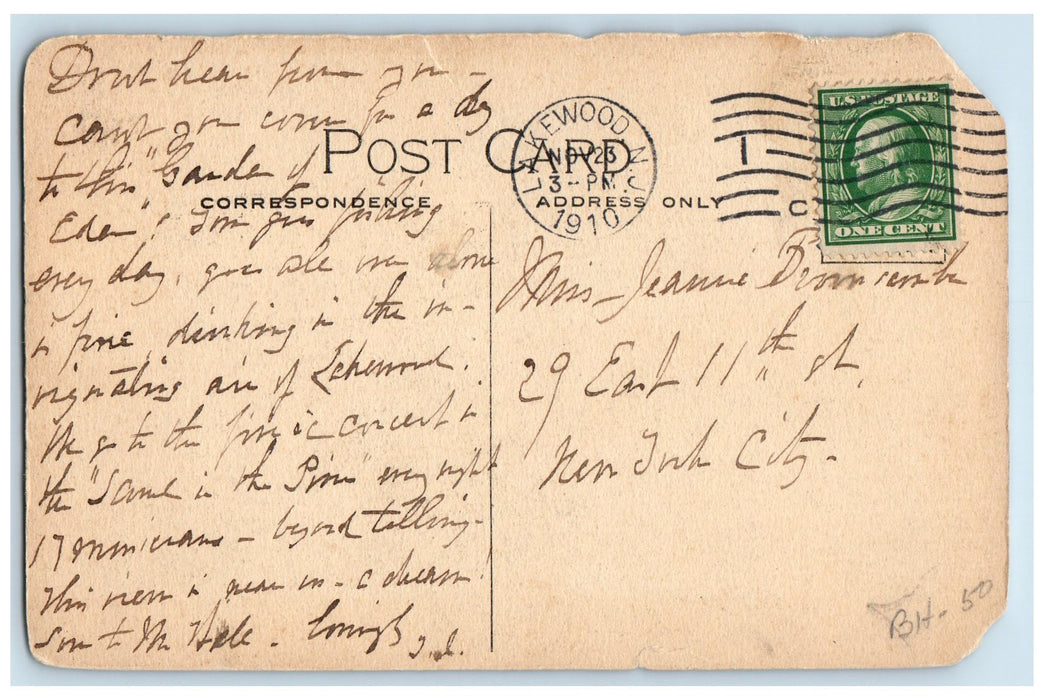 POST CARD
CORRESPONDENCE
ADDRESS ONLY
LAKEWOOD, N.J.
NOV 23
3-PM
1910
U.S. POSTAGE
ONE CENT
Don't hear from you -
Can't you come for a day
to this "Garden of
Eden"? Tom goes fishing
every day, goes out alone
in pine, drinking in the in-
vigorating air of Lakewood.
We go to the music concert in
the "Laurel in the Pines" every night
17 musicians - beyond telling -
This view is near us - a dream!
to Mr Lovingly
Miss Jeannie
29 East 11th St,
New York City.
BH-50